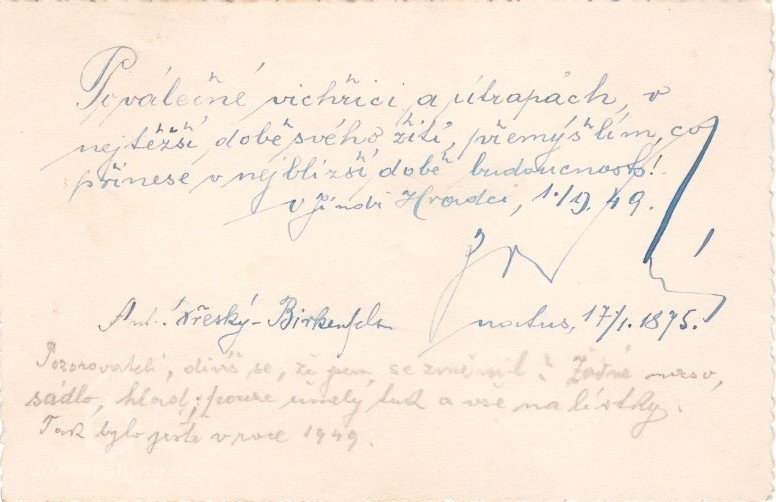 Poválečné vichřici a útrapách, v
nejtěžší době svého žití, přemýšlím, co
přinese v nejbližší době budoucnost!
v Jindř Hradci, 1./9. 49.
Ant. Křeský-Birkenfels natus, 17/1. 1875.
Pozorovateli, divíš se, že jsem se změnil? Žádné maso,
sádlo, hlad, pouze umělý tuk a vše na lístky.
Tak bylo ještě v roce 1949.